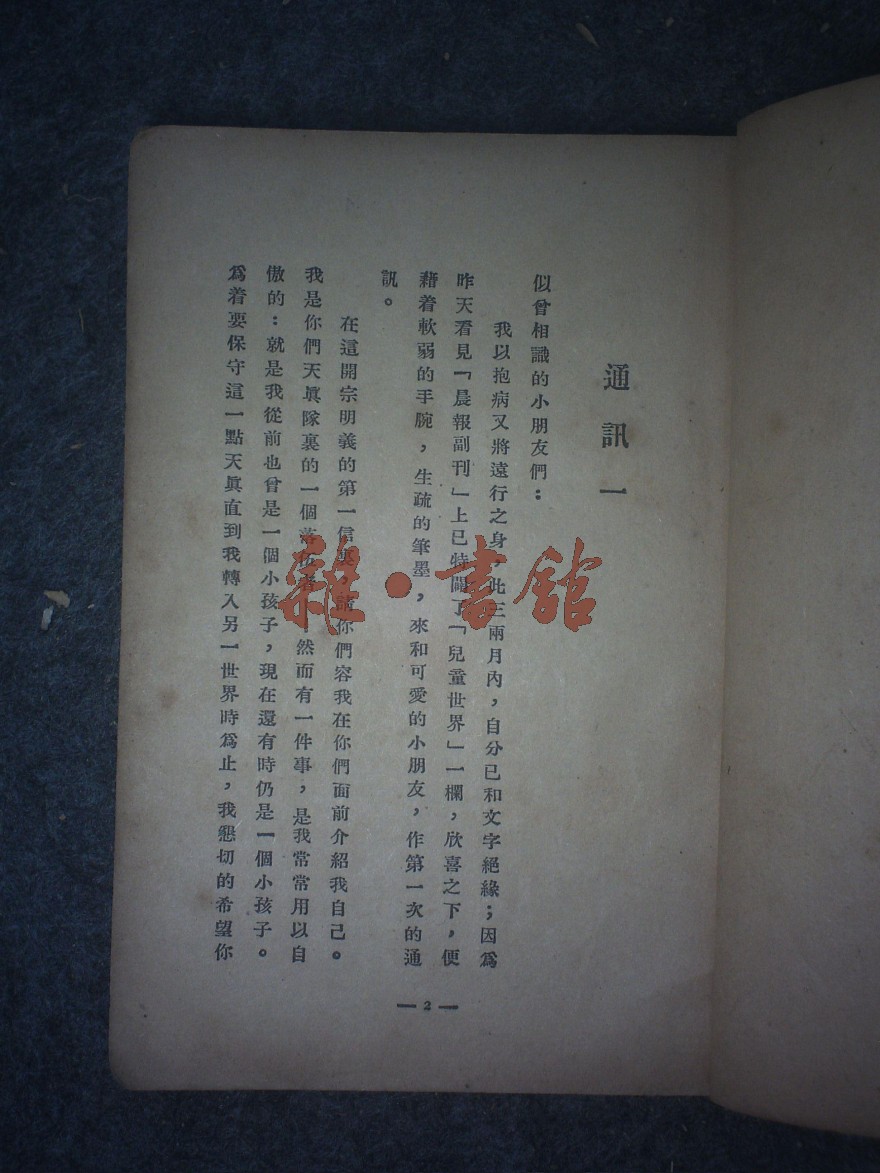 通訊一
似曾相識的小朋友們：
我以抱病又將遠行之身，此三兩月內，自分已和文字絕緣；因爲
昨天看見「晨報副刊」上已特闢了「兒童世界」一欄，欣喜之下，便
藉着軟弱的手腕，生疏的筆墨，來和可愛的小朋友，作第一次的通
訊。
在這開宗明義的第一信裏，請你們容我在你們面前介紹我自己。
我是你們天眞隊裏的一個落伍者——然而有一件事，是我常常用以自
傲的：就是我從前也曾是一個小孩子，現在還有時仍是一個小孩子。
爲着要保守這一點天眞直到我轉入另一世界時爲止，我懇切的希望你
— 2 —
雜·書館